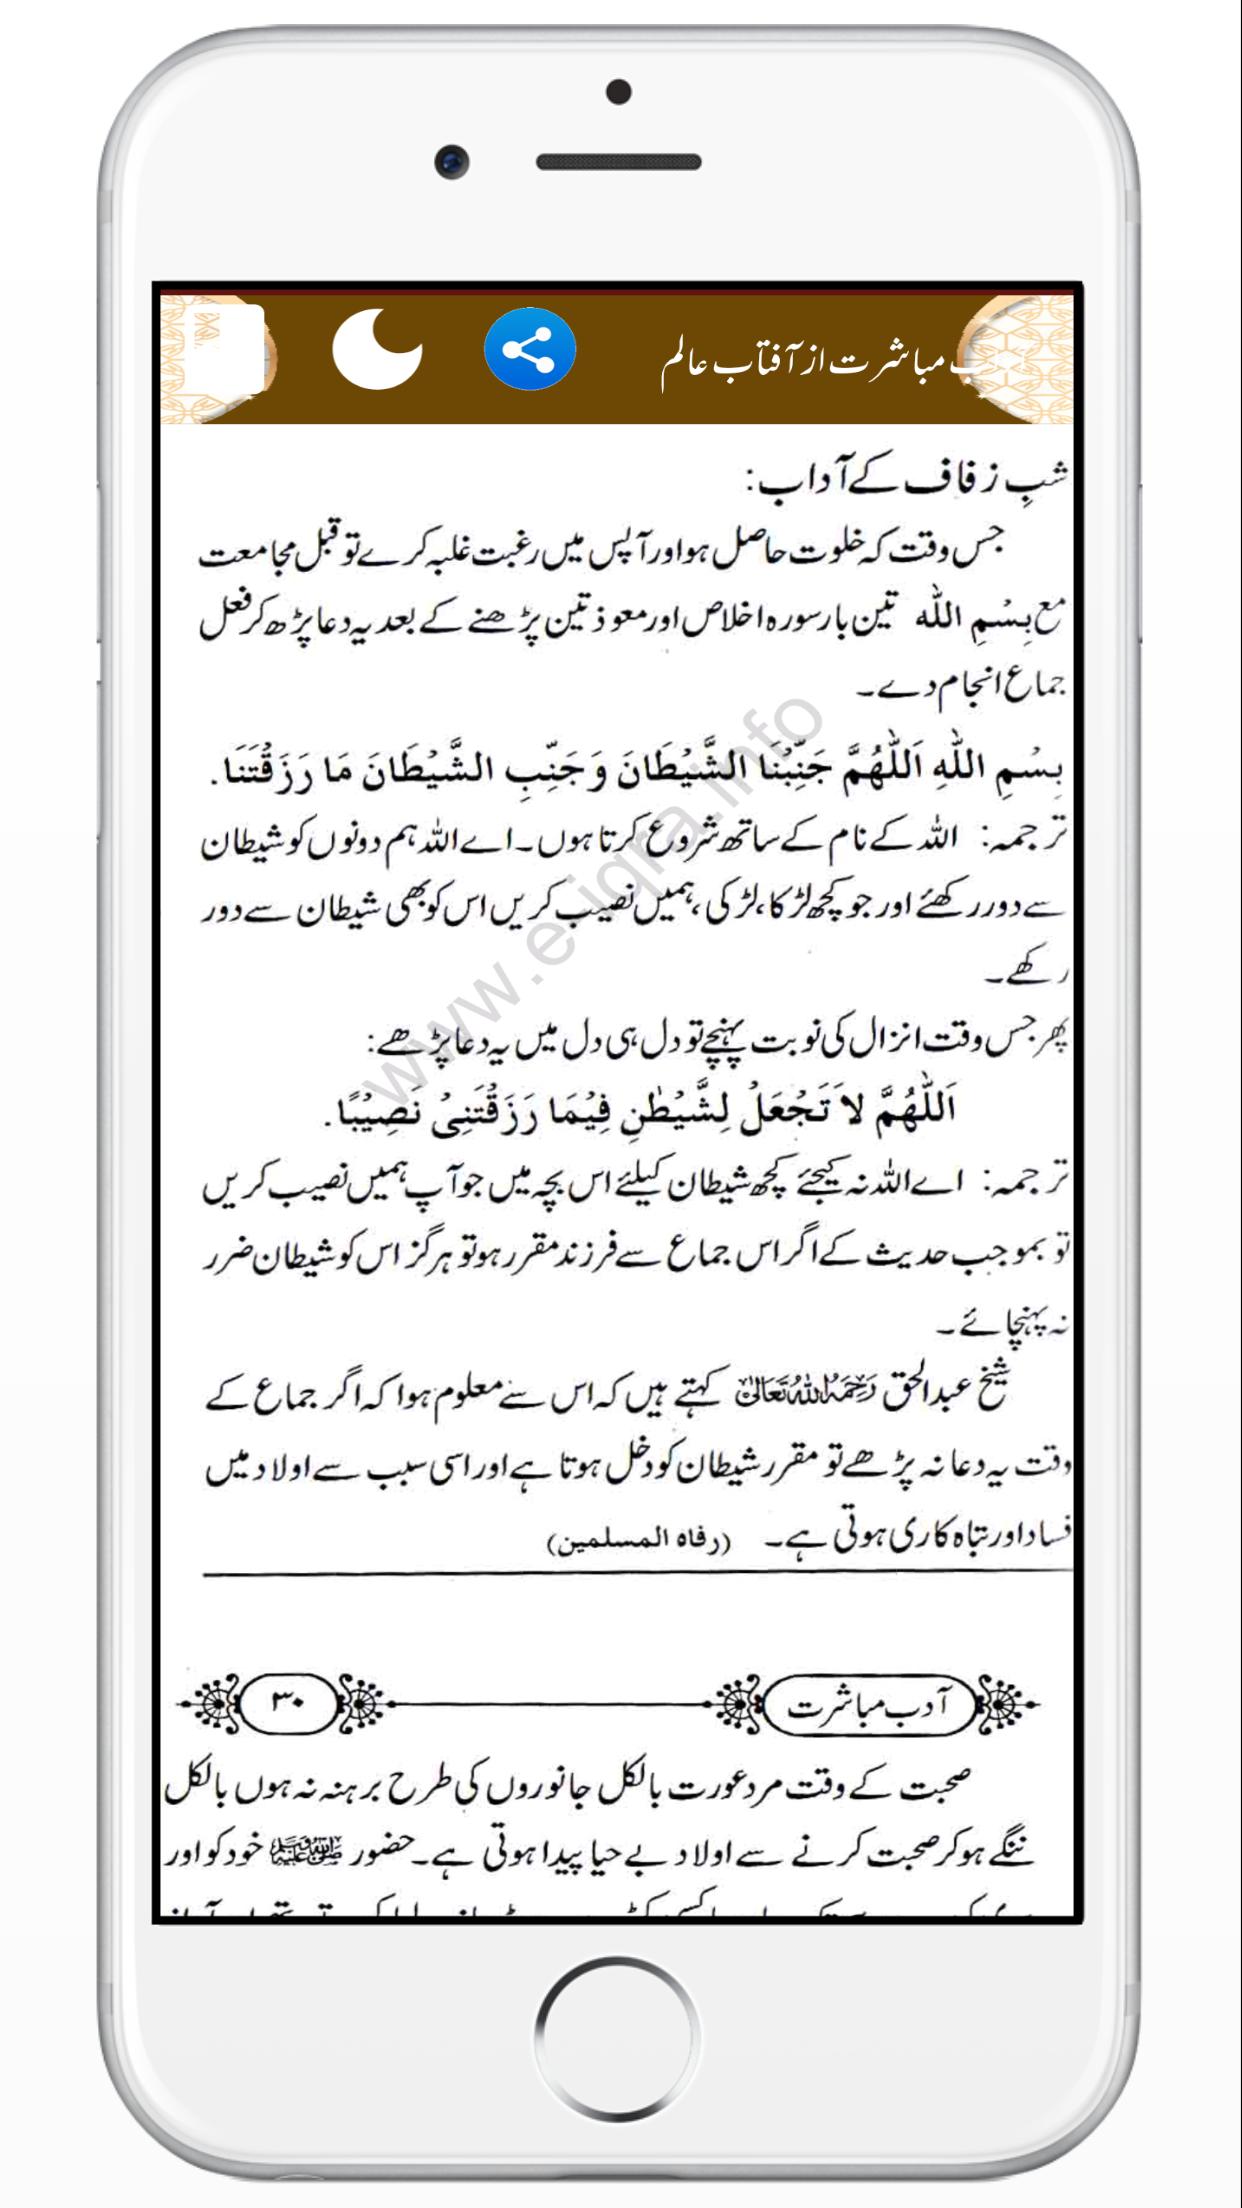 مباشرت از آفتاب عالم
شبِ زفاف کے آداب:
جس وقت کہ خلوت حاصل ہو اور آپس میں رغبت غلبہ کرے تو قبل مجامعت
مع بِسْمِ اللہ تین بار سورہ اخلاص اور معوذتین پڑھنے کے بعد یہ دعا پڑھ کر فعل
جماع انجام دے۔
بِسْمِ اللّٰهِ اَللّٰهُمَّ جَنِّبْنَا الشَّيْطَانَ وَجَنِّبِ الشَّيْطَانَ مَا رَزَقْتَنَا.
ترجمہ: اللہ کے نام کے ساتھ شروع کرتا ہوں۔ اے اللہ ہم دونوں کو شیطان
سے دور رکھئے اور جو کچھ لڑکا، لڑکی، ہمیں نصیب کریں اس کو بھی شیطان سے دور
رکھے۔
پھر جس وقت انزال کی نوبت پہنچے تو دل ہی دل میں یہ دعا پڑھے:
اَللّٰهُمَّ لاَ تَجْعَلْ لِشَّيْطٰنِ فِيْمَا رَزَقْتَنِيْ نَصِيْبًا.
ترجمہ: اے اللہ نہ کیجئے کچھ شیطان کیلئے اس بچہ میں جو آپ ہمیں نصیب کریں
تو بموجب حدیث کے اگر اس جماع سے فرزند مقرر ہو تو ہرگز اس کو شیطان ضرر
نہ پہنچائے۔
شیخ عبدالحق رَحِمَهُ اللّٰهُ تَعَالىٰ کہتے ہیں کہ اس سے معلوم ہوا کہ اگر جماع کے
وقت یہ دعا نہ پڑھے تو مقرر شیطان کو دخل ہوتا ہے اور اسی سبب سے اولاد میں
فساد اور تباہ کاری ہوتی ہے۔ (رفاه المسلمين)
آدب مباشرت ۳۰
صحبت کے وقت مرد عورت بالکل جانوروں کی طرح برہنہ نہ ہوں بالکل
ننگے ہو کر صحبت کرنے سے اولاد بے حیا پیدا ہوتی ہے۔ حضور ﷺ خود کو اور
www.e-iqra.info